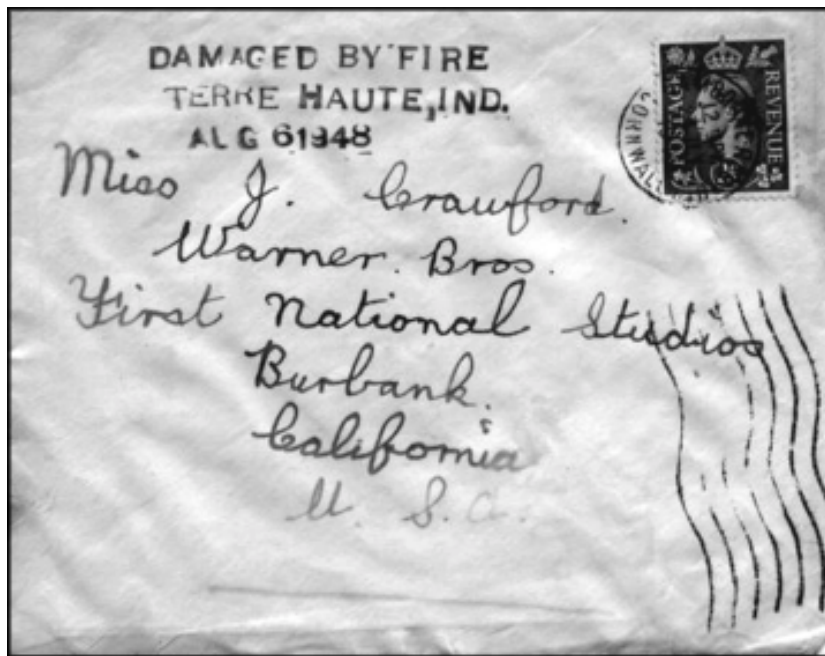 DAMAGED BY FIRE
TERRE HAUTE, IND.
AUG 6 1948
POSTAGE
REVENUE
CORNWALL
Miss J. Crawford.
Warner. Bros.
First National Studios
Burbank.
California
U. S. A.